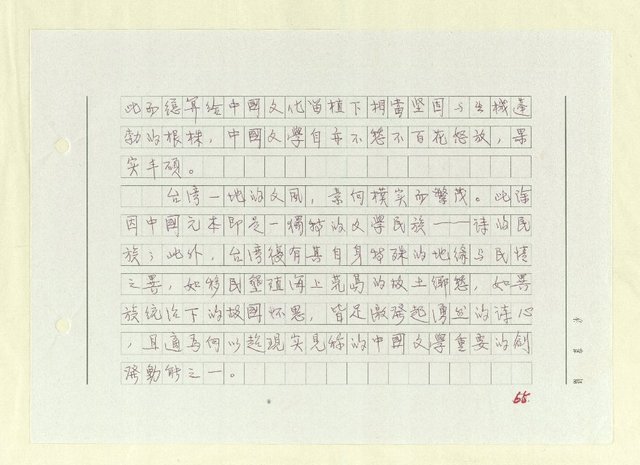 此而總算給中國文化留植下相當坚固与生機蓬
勃的根株，中國文學自亦不能不百花怒放，果
实丰碩。
台湾一地的文風，素向樸实而繁茂。此除
因中國元本即是一獨特的文學民族——诗的民
族；此外，台湾復有其自身特殊的地緣与民情
之異，如移民墾殖海上荒島的故土鄉愁，如異
族统治下的故國怀思，皆足激發起湧出的诗心
，且適為何以超現实見称的中國文學重要的創
發動能之一。
65.